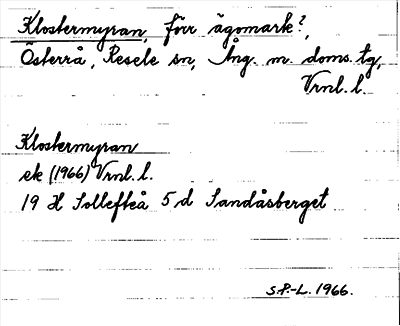 Klostermyran, förr ägomark?,
Österrå, Resele sn, Ång. m. doms. tg,
Vrnl. l.
Klostermyran
ek (1966) Vrnl. l.
19 H Sollefteå 5 d Sandåsberget
S.P.-L. 1966.